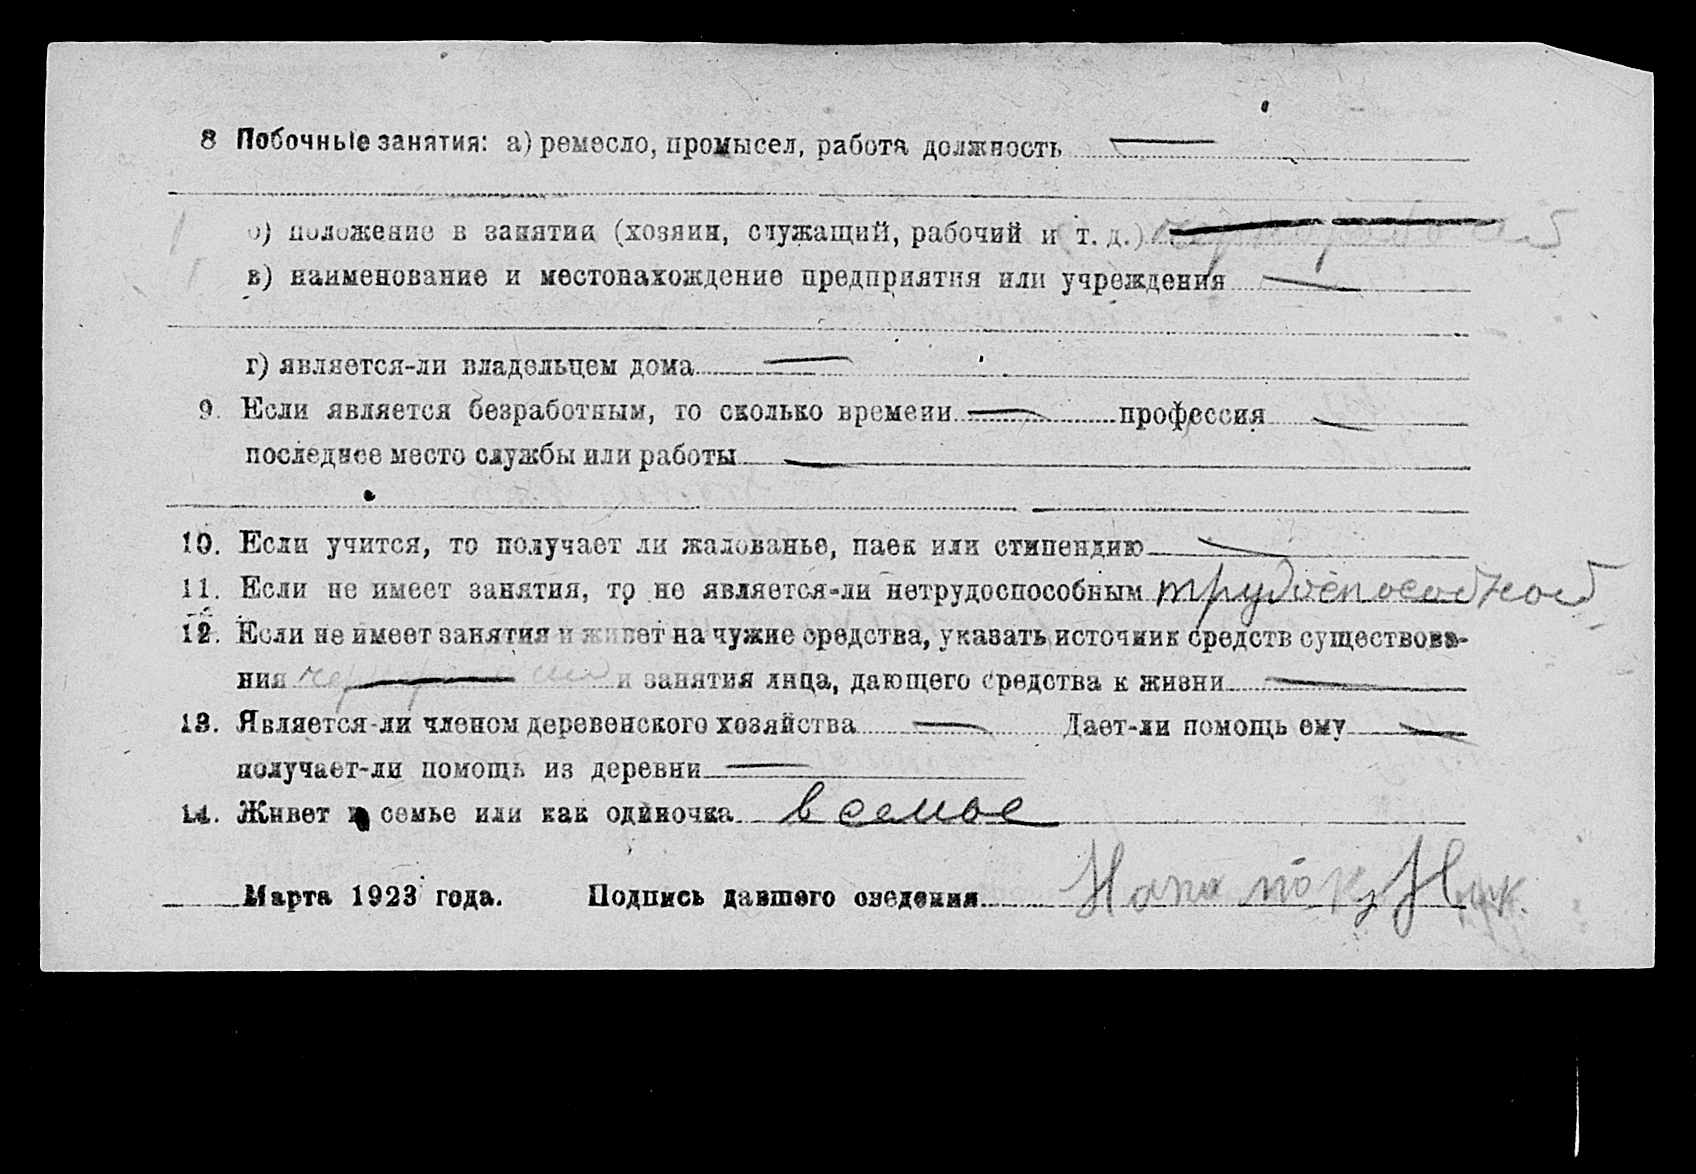 8 Побочные занятия: а) ремесло, промысел, работа должность —
б) положение в занятии (хозяин, служащий, рабочий и т. д.) —
в) наименование и местонахождение предприятия или учреждения —
г) является-ли владельцем дома —
9. Если является безработным, то сколько времени — профессия —
последнее место службы или работы —
10. Если учится, то получает ли жалованье, паек или стипендию —
11. Если не имеет занятия, то не является-ли нетрудоспособным трудоспособной
12. Если не имеет занятия и живет на чужие средства, указать источник средств существова-
ния — и занятия лица, дающего средства к жизни —
13. Является-ли членом деревенского хозяйства — Дает-ли помощь ему —
получает-ли помощь из деревни —
14. Живет в семье или как одиночка в семье
Марта 1923 года. Подпись давшего сведения